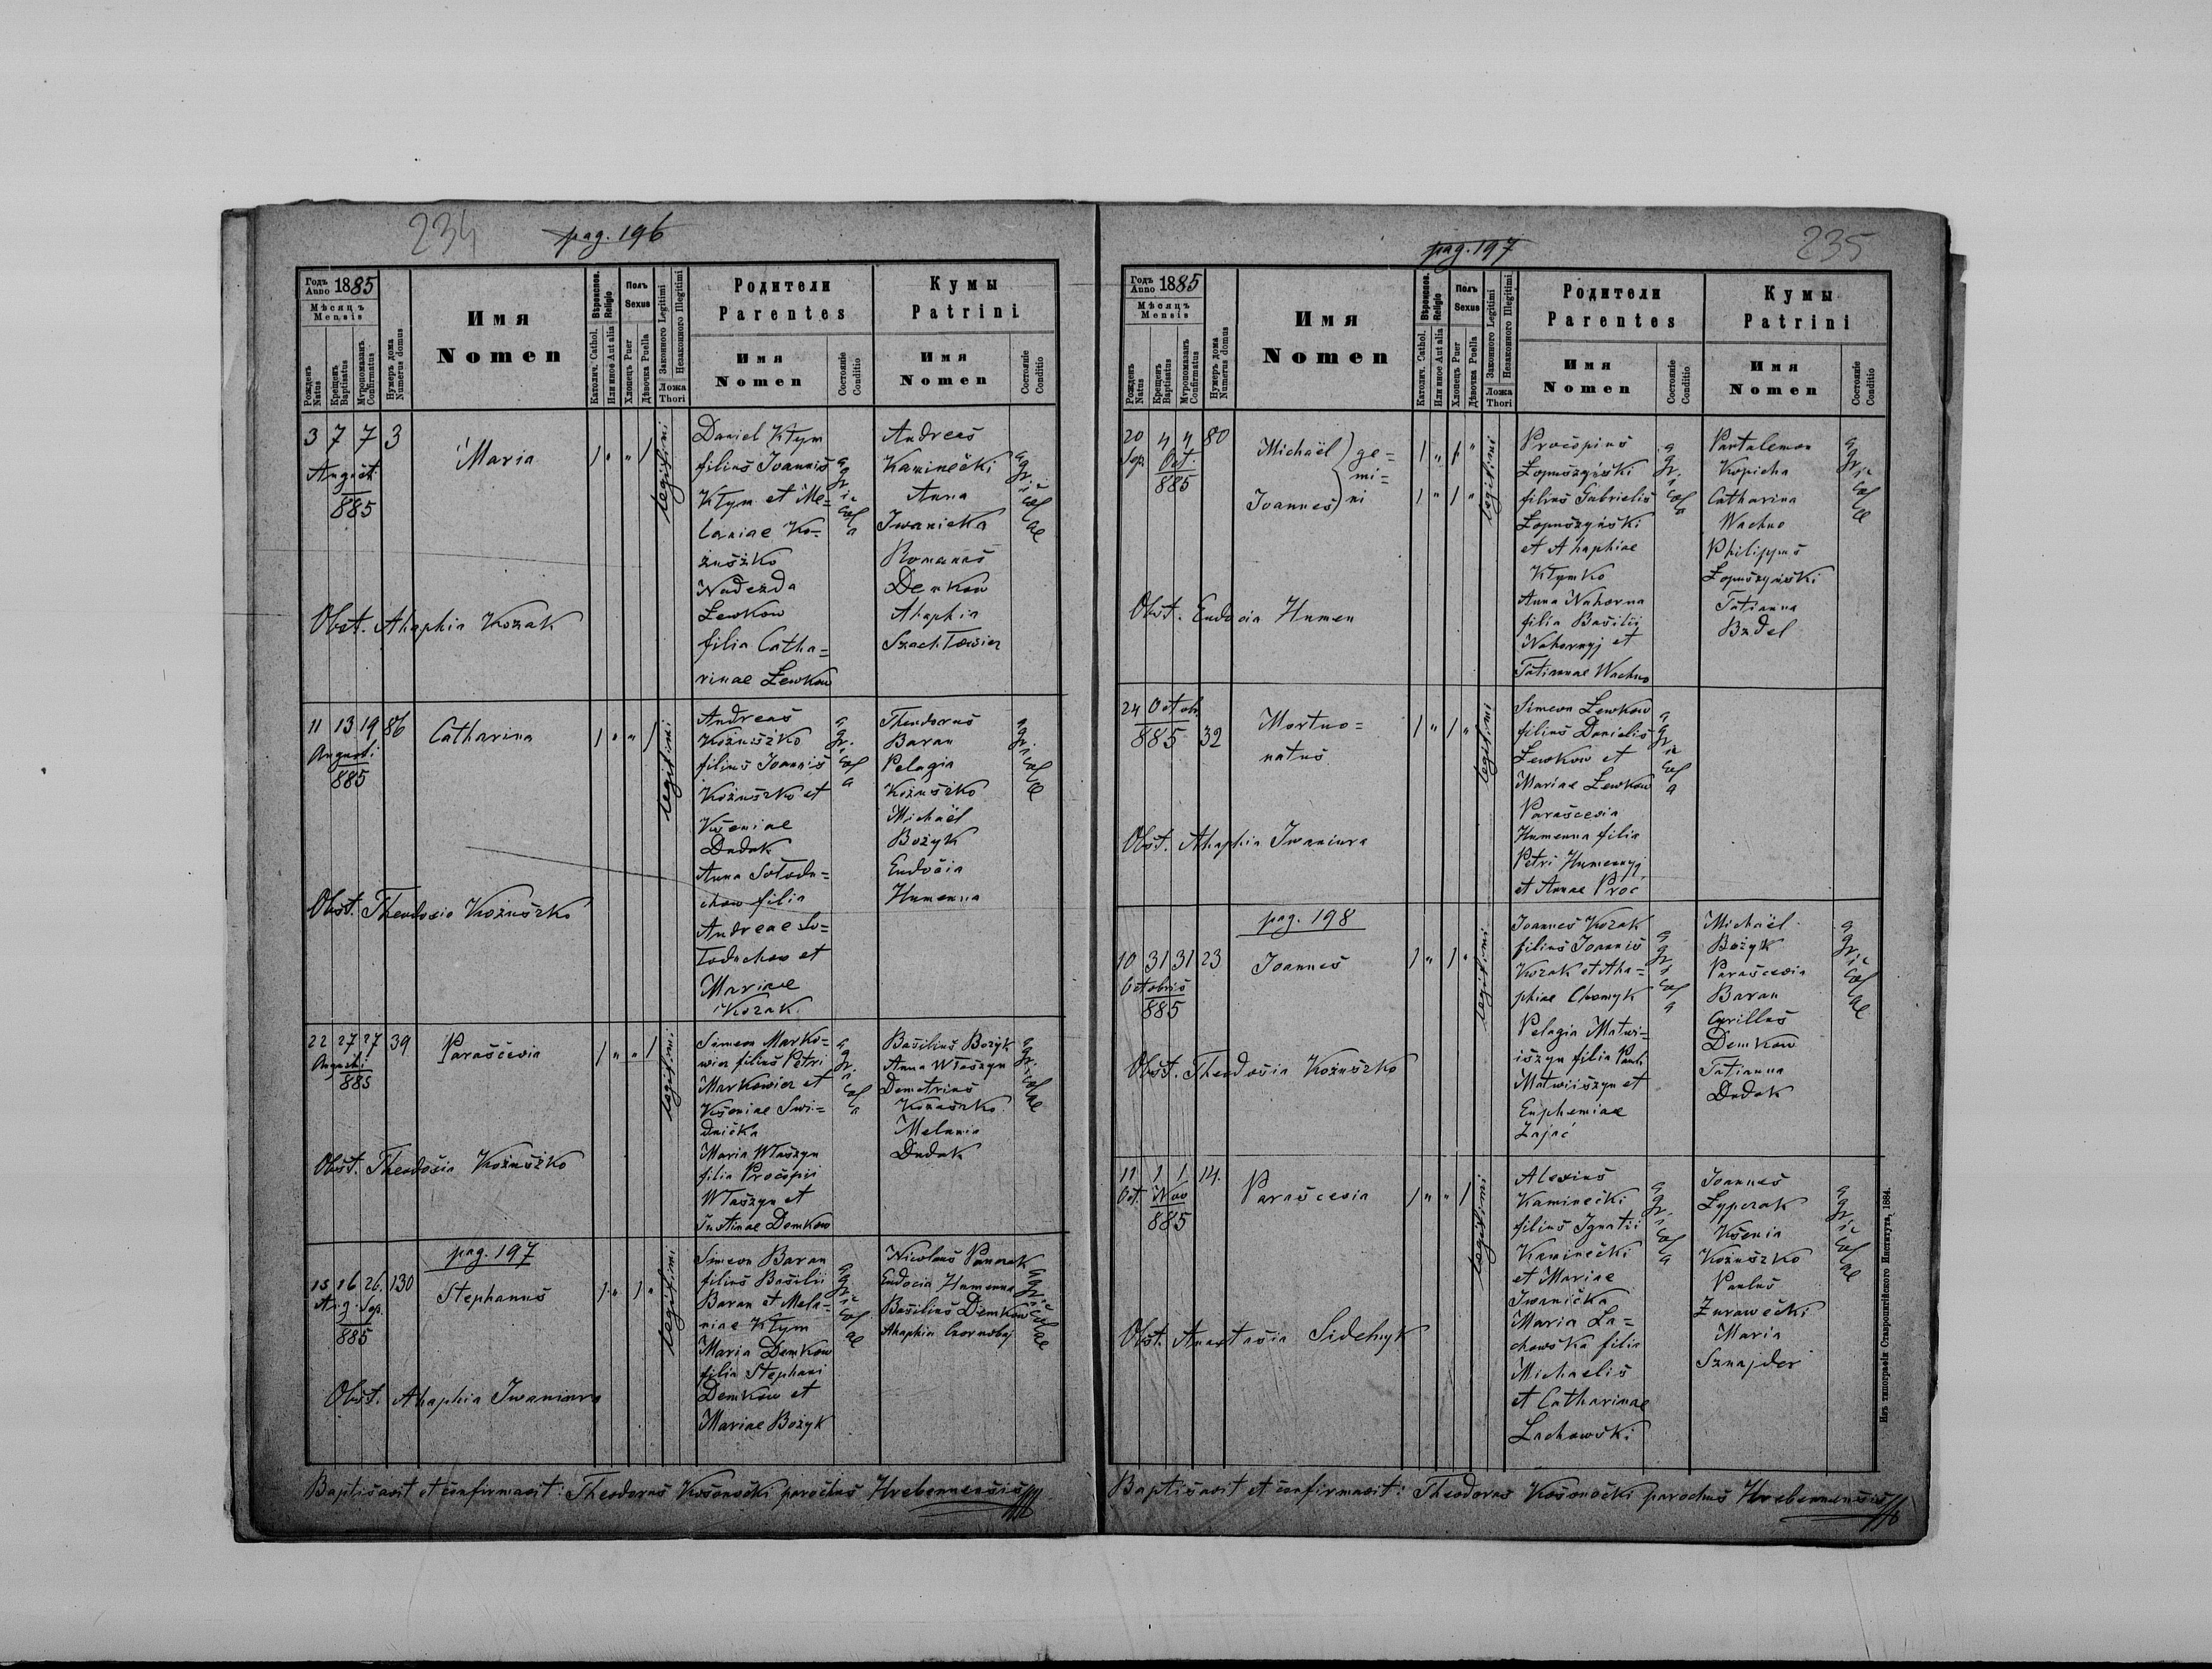 234
pag. 196
Годъ Anno 1885
Мѣсяцъ Mensis
Рожденъ Natus
Крещенъ Baptisatus
Муропомазанъ Confirmatus
Нумеръ дома Numerus domus
Имя
Nomen
Вѣроисповѣд. Religio
Католич. Cathol.
Или иноё Aut alia
Полъ Sexus
Хлопецъ Puer
Дѣвочка Puella
Законного Legitimi
Незаконного Illegitimi
Ложа Thori
Родители
Parentes
Имя
Nomen
Состояніе Conditio
Кумы
Patrini
Имя
Nomen
Состояніе Conditio
3 7 7 3
August
885
Maria
legitimi
Daniel Kłym
filius Joannis
Kłym et Me=
laniae Ko=
żuszko
Nadezda
Lewkow
filia Catha=
rinae Lewkow
agricola
Andreas
Kaminecki
Anna
Iwanicka
Romanus
Demkow
Ahaphia
Szachtowicz
agricolae
Obst. Ahaphia Kozak
11 13 19 86
Augusti
885
Catharina
legitimi
Andreas
Kożuszko
filius Joannis
Kożuszko et
Kseniae
Dudak
Anna Sołodu=
chow filia
Andreae So=
łoduchow et
Mariae
Kozak
agricola
Theodorus
Baran
Pelagia
Kożuszko
Michaël
Bożyk
Eudocia
Humenna
agricolae
Obst. Theodosia Kożuszko
22 27 27 39
Augusti
885
Parascevia
legitimi
Simeon Marko=
wicz filius Petri
Markowicz et
Kseniae Swi=
dnicka
Maria Właszyn
filia Procopii
Właszyn et
Justinae Demkow
agricola
Basilius Bożyk
Anna Właszyn
Demetrius
Kożuszko
Melania
Dudak
agricolae
Obst. Theodosia Kożuszko
pag. 197
15 16 26. 130
Aug. Sep.
885
Stephanus
legitimi
Simeon Baran
filius Basilii
Baran et Mela=
niae Kłym
Maria Demkow
filia Stephani
Demkow et
Mariae Bożyk
agricolae
Nicolaus Panczak
Eudocia Humenna
Basilius Demkow
Ahaphia Czornobaj
agricolae
Obst. Ahaphia Iwaniura
Baptisavit et confirmavit: Theodorus Kosonocki parochus Hrebennensis
235
pag. 197
Годъ Anno 1885
Мѣсяцъ Mensis
Рожденъ Natus
Крещенъ Baptisatus
Муропомазанъ Confirmatus
Нумеръ дома Numerus domus
Имя
Nomen
Вѣроисповѣд. Religio
Католич. Cathol.
Или иноё Aut alia
Полъ Sexus
Хлопецъ Puer
Дѣвочка Puella
Законного Legitimi
Незаконного Illegitimi
Ложа Thori
Родители
Parentes
Имя
Nomen
Состояніе Conditio
Кумы
Patrini
Имя
Nomen
Состояніе Conditio
20 4 4 80
Sep. Oct.
885
Michaël
Joannes
ge=
mi=
ni
legitimi
Procopius
Łopuszyński
filius Gabrielis
Łopuszyński
et Ahaphiae
Kłymko
Anna Nahorna
filia Basilij
Nahornyj et
Tatiannae Wachno
agricola
Pantalemon
Kopicha
Catharina
Wachno
Philippus
Łopuszyński
Tatianna
Bzdel
agricolae
Obst. Eudocia Humen
24 Octob.
885 32
Mortuo=
natus
legitimi
Simeon Lewkow
filius Danielis
Lewkow et
Mariae Lewkow
Parascevia
Humenna filia
Petri Humennyj
et Annae Proc
agricola
Obst. Ahaphia Iwaniura
pag. 198
10 31 31 23
Octobris
885
Joannes
legitimi
Joannes Kozak
filius Joannis
Kozak et Aha=
phiae Chomyk
Pelagia Matwi=
iszyn filia Pauli
Matwiiszyn et
Euphemiae
Zając
agricola
Michaël
Bożyk
Parascevia
Baran
Cyrillus
Demkow
Tatianna
Dudak
agricolae
Obst. Theodosia Kożuszko
11 1 1 14.
Oct. Nov
885
Parascevia
legitimi
Alexius
Kaminecki
filius Ignatii
Kaminecki
et Mariae
Iwanicka
Maria La=
chowska filia
Michaelis
et Catharinae
Lachowski
agricola
Joannes
Łypczak
Ksenia
Kożuszko
Paulus
Żurawecki
Maria
Sznajder
agricolae
Obst. Anastasia Sidelnyk
Baptisavit et confirmavit: Theodorus Kosonocki parochus Hrebennensis
Изъ типографіи Ставропигійского Института, 1884.